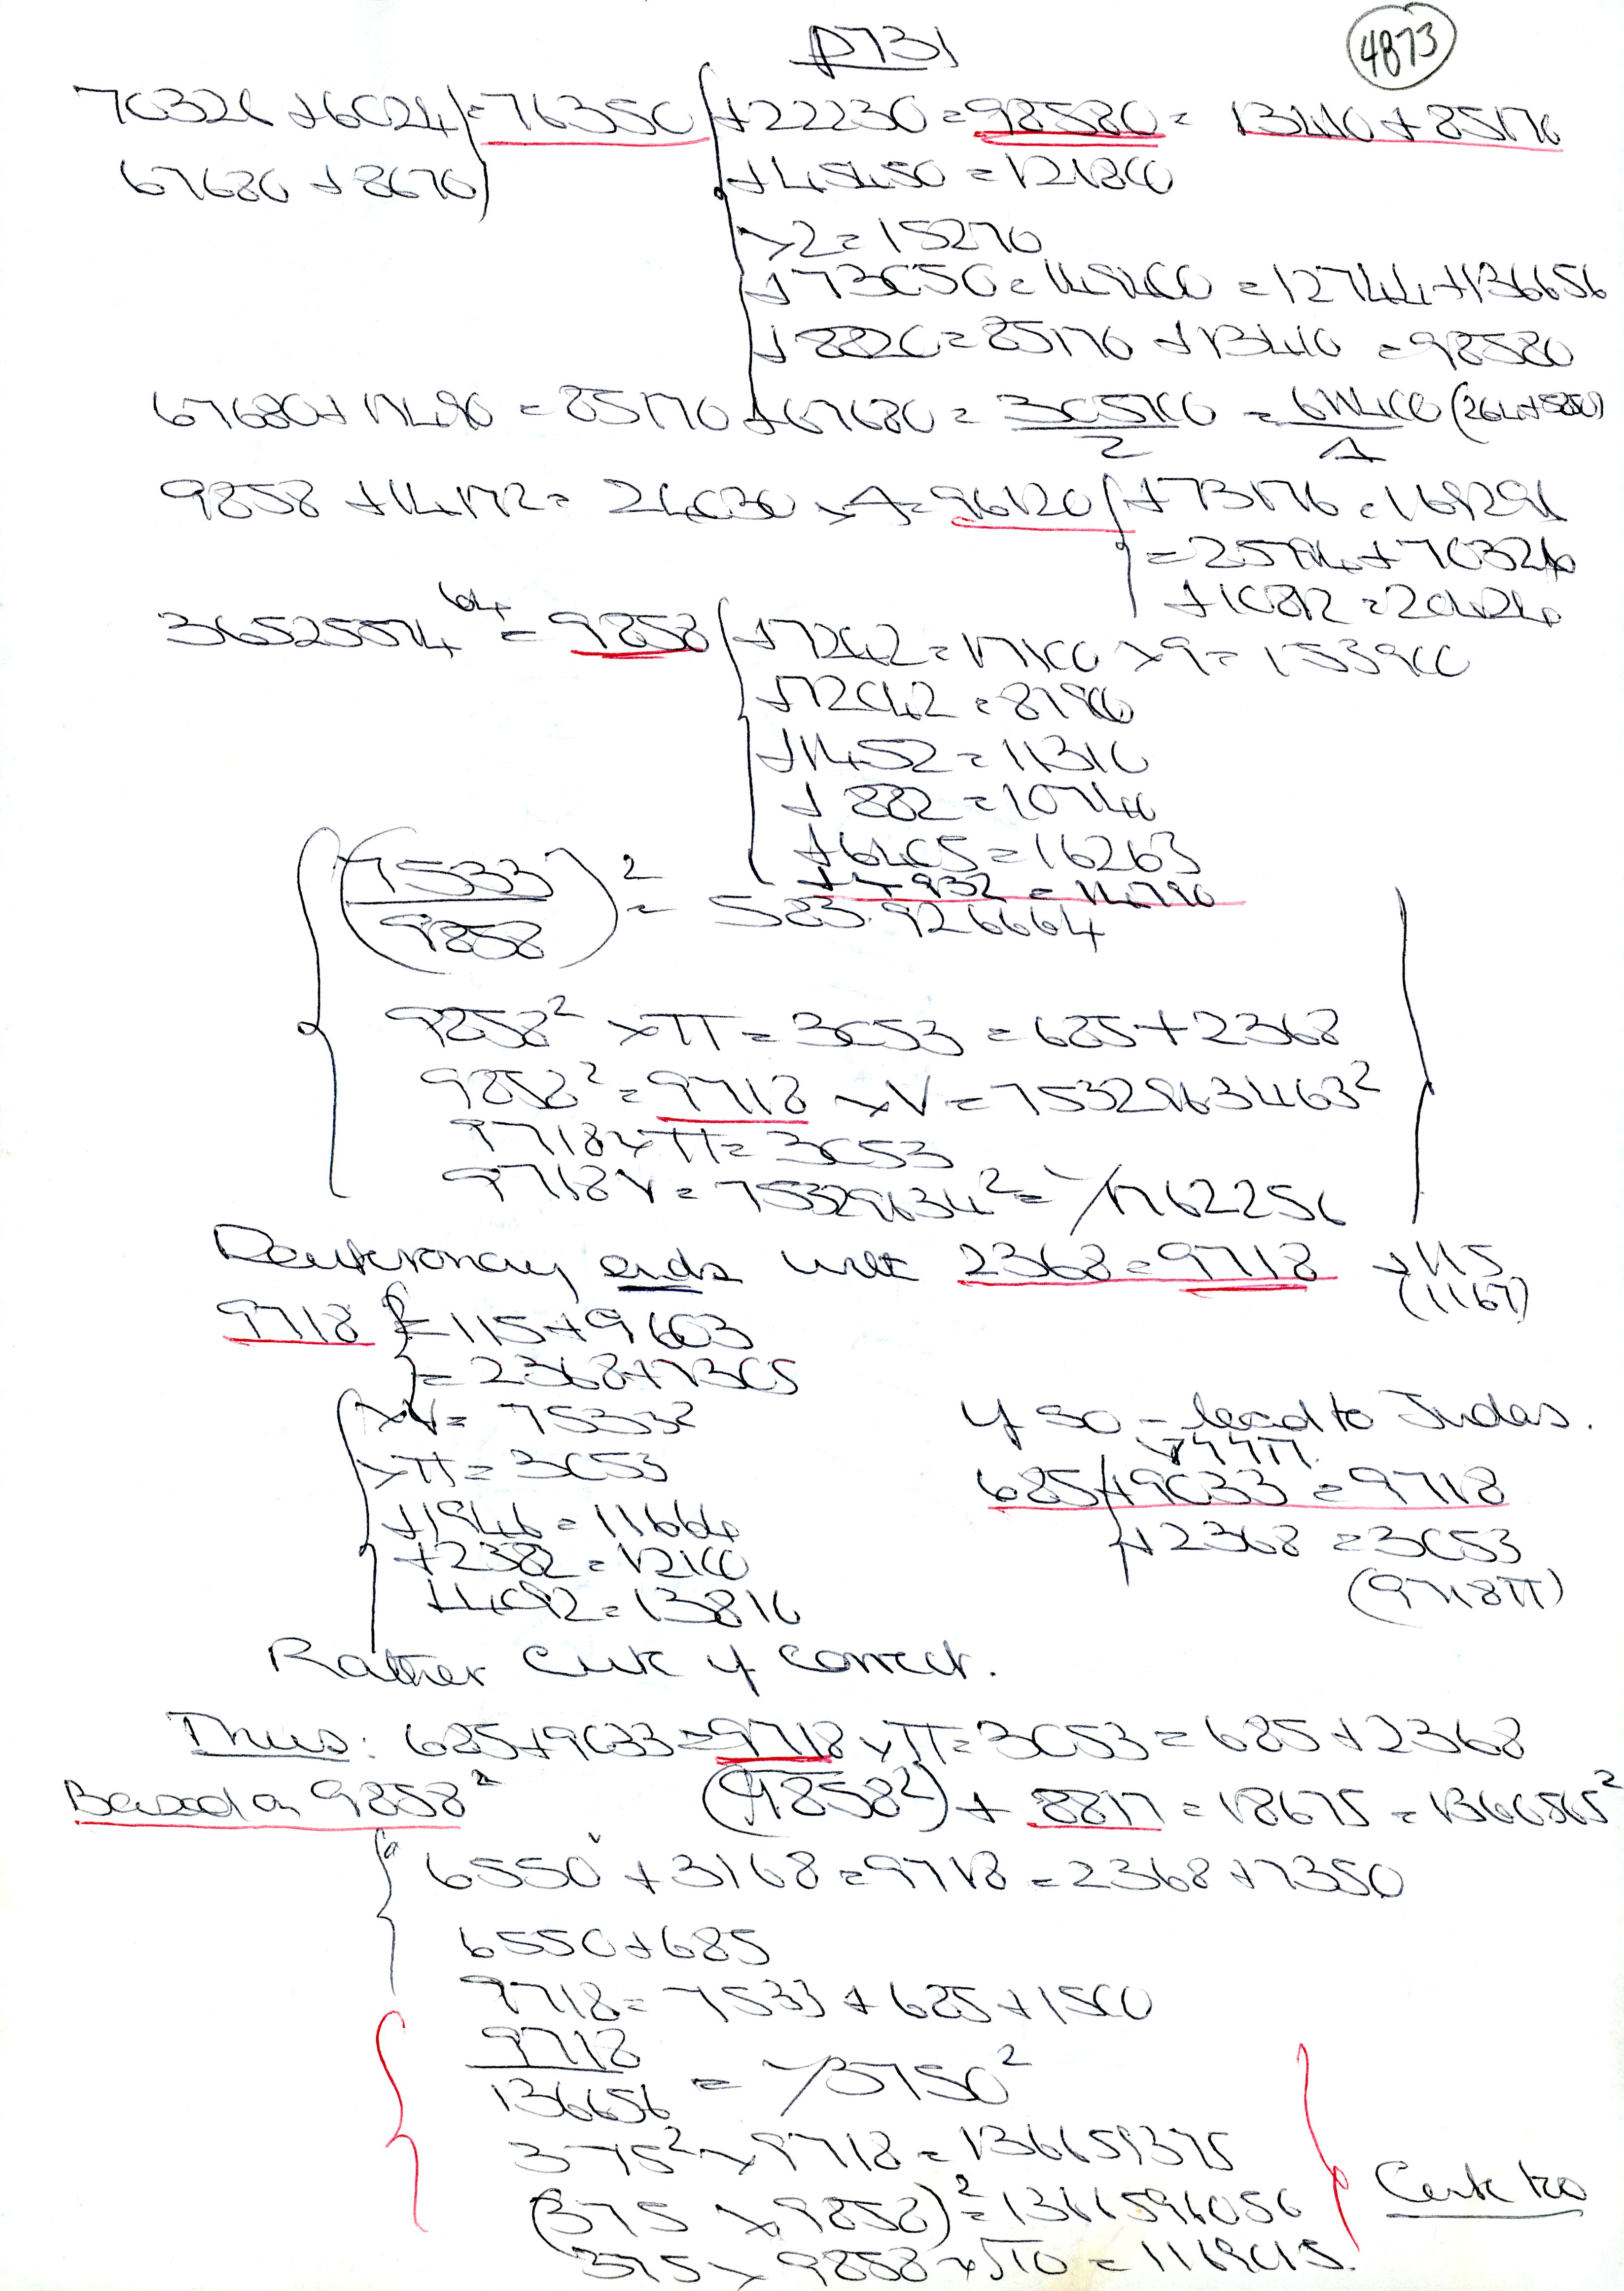 P731
4873
70326 + 6024 = 76350 + 22230 = 98580 = 13410 + 85170
67680 + 8670
+ 45450 = 121800
× 2 = 15270
+ 73050 = 149400 = 12744 + 136656
+ 8820 = 85170 + 13410 = 98580
67680 + 17490 = 85170 + 67680 = 305700/2 = 611400/4 (264 + 5850)
9858 + 14172 = 24030 × 4 = 96120 + 73176 = 169296
= 25794 + 70326
+ 10812 = 20424
36525574 64 = 9858 + 7242 = 17100 × 9 = 153900
+ 72042 = 81900
+ 1452 = 11310
+ 882 = 10740
+ 6405 = 16263
+ 4932 = 14790
(7533/9858)² = 583.926664
9858² × π = 3053 = 685 + 2368
9858² = 9718 × V = 7532963463²
9718 × π = 3053
9718 V = 75329634² = 1/1762256
Deuteronomy ends with 2368 = 9718 + 115
(1167)
9718 = 115 + 9603
= 2368 + 7350
× V = 7533²
× π = 3053
+ 1946 = 11664
+ 2382 = 12100
+ 4092 = 13810
If so - lead to Judas.
685 + 9033 = 9718
+ 2368 = 3053
(9718π)
Rather Cute if correct.
Thus: 685 + 9033 = 9718 × π = 3053 = 685 + 2368
Based on 9858² (9858²) + 8817 = 18675 = 1366565²
6550 + 3168 = 9718 = 2368 + 7350
6550 + 685
9718 = 7533 + 685 + 1500
9718/136656 = 1/3750²
375² × 9718 = 136659375
(375 × 9858)² = 1366596056
375 × 9858 × √10 = 1169015.
Cute too